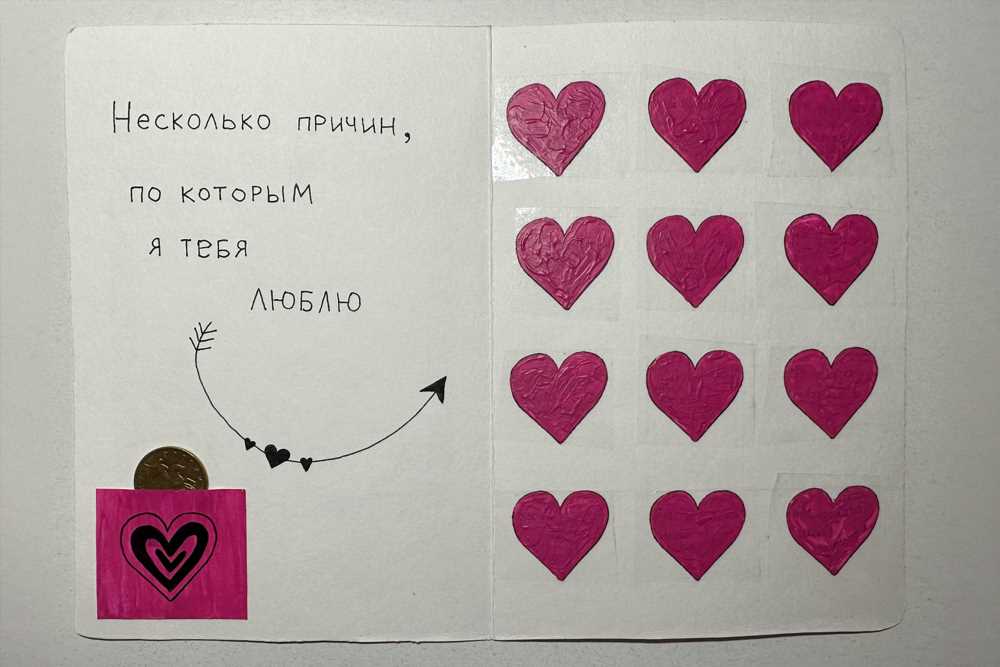 Несколько причин,
по которым
я тебя
люблю